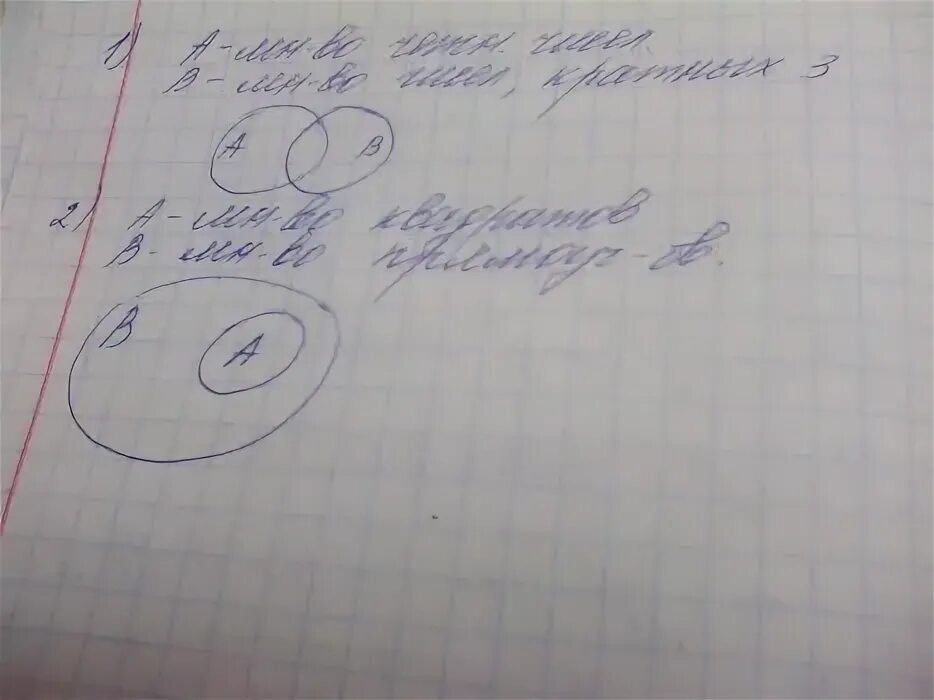 1) А - мн-во четн. чисел.
В - мн-во чисел, кратных 3
А В
2) А - мн-во квадратов
В - мн-во прямоуг-ов.
В
А